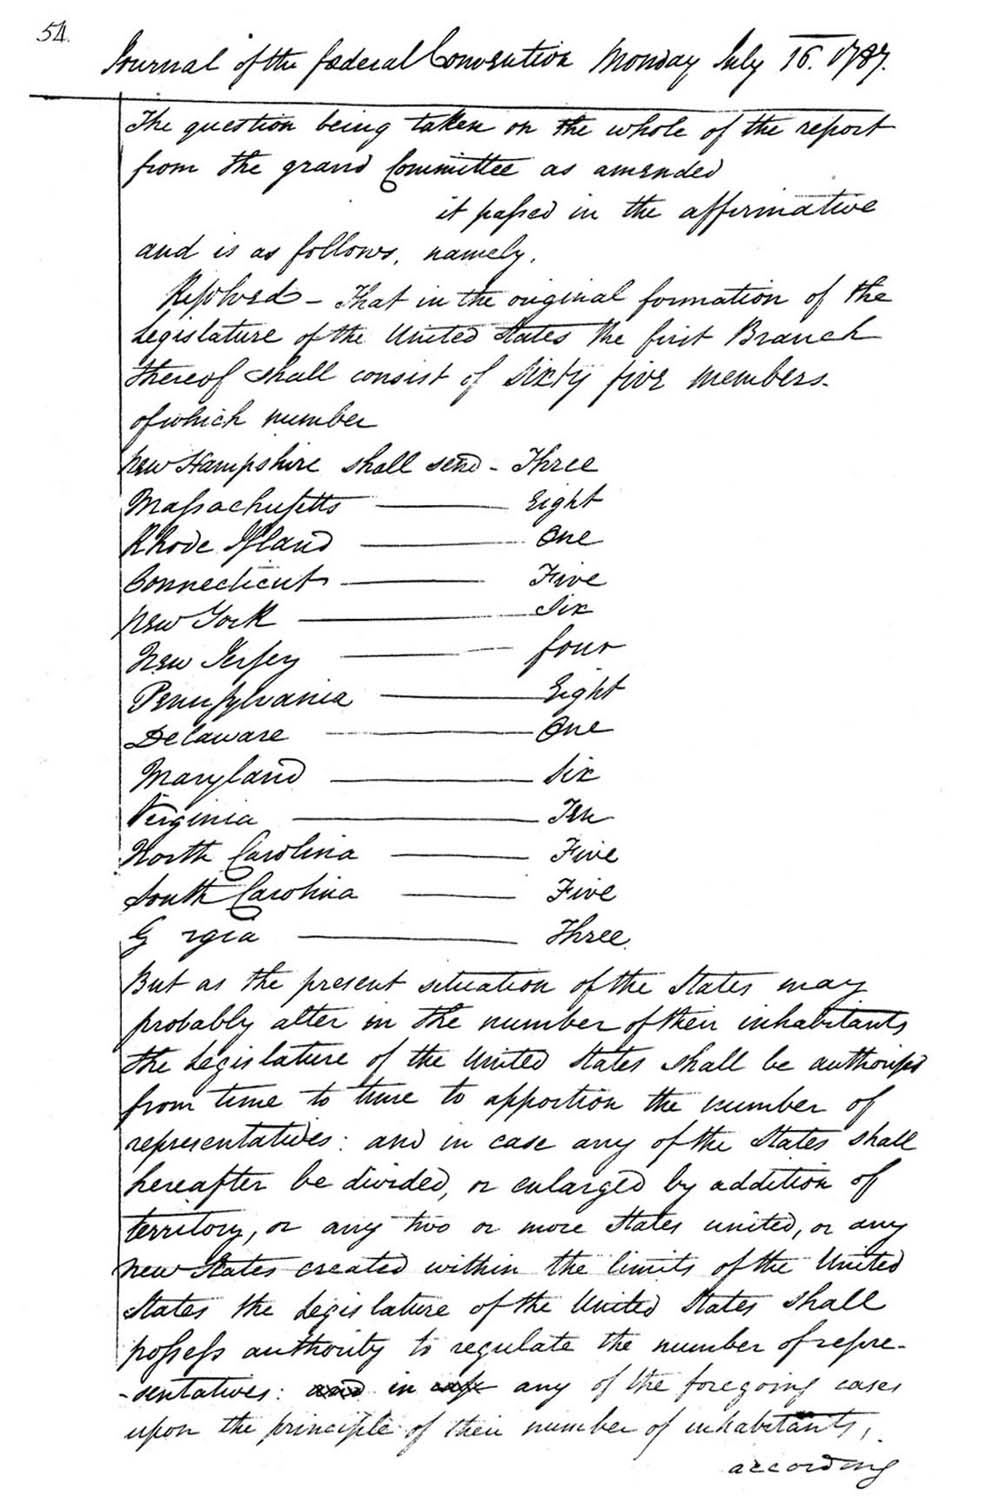 54.
Journal of the fœderal Convention Monday July 16. 1787.
The question being taken on the whole of the report
from the grand Committee as amended
it passed in the affirmative
and is as follows, namely.
Resolved - That in the original formation of the
Legislature of the United States the first Branch
thereof shall consist of Sixty five members.
of which number
New Hampshire shall send - Three
Massachusetts ——— Eight
Rhode Island ——— One
Connecticut ——— Five
New York ——— Six
New Jersey ——— four
Pennsylvania ——— Eight
Delaware ——— One
Maryland ——— Six
Virginia ——— Ten
North Carolina ——— Five
South Carolina ——— Five
G rgia ——— Three.
But as the present situation of the States may
probably alter in the number of their inhabitants
the Legislature of the United States shall be authorised
from time to time to apportion the number of
representatives: and in case any of the States shall
hereafter be divided, or enlarged by addition of
territory, or any two or more States united, or any
new States created within the limits of the United
States the Legislature of the United States shall
possess authority to regulate the number of repre-
-sentatives: and in case any of the foregoing cases
upon the principle of their number of inhabitants,
according